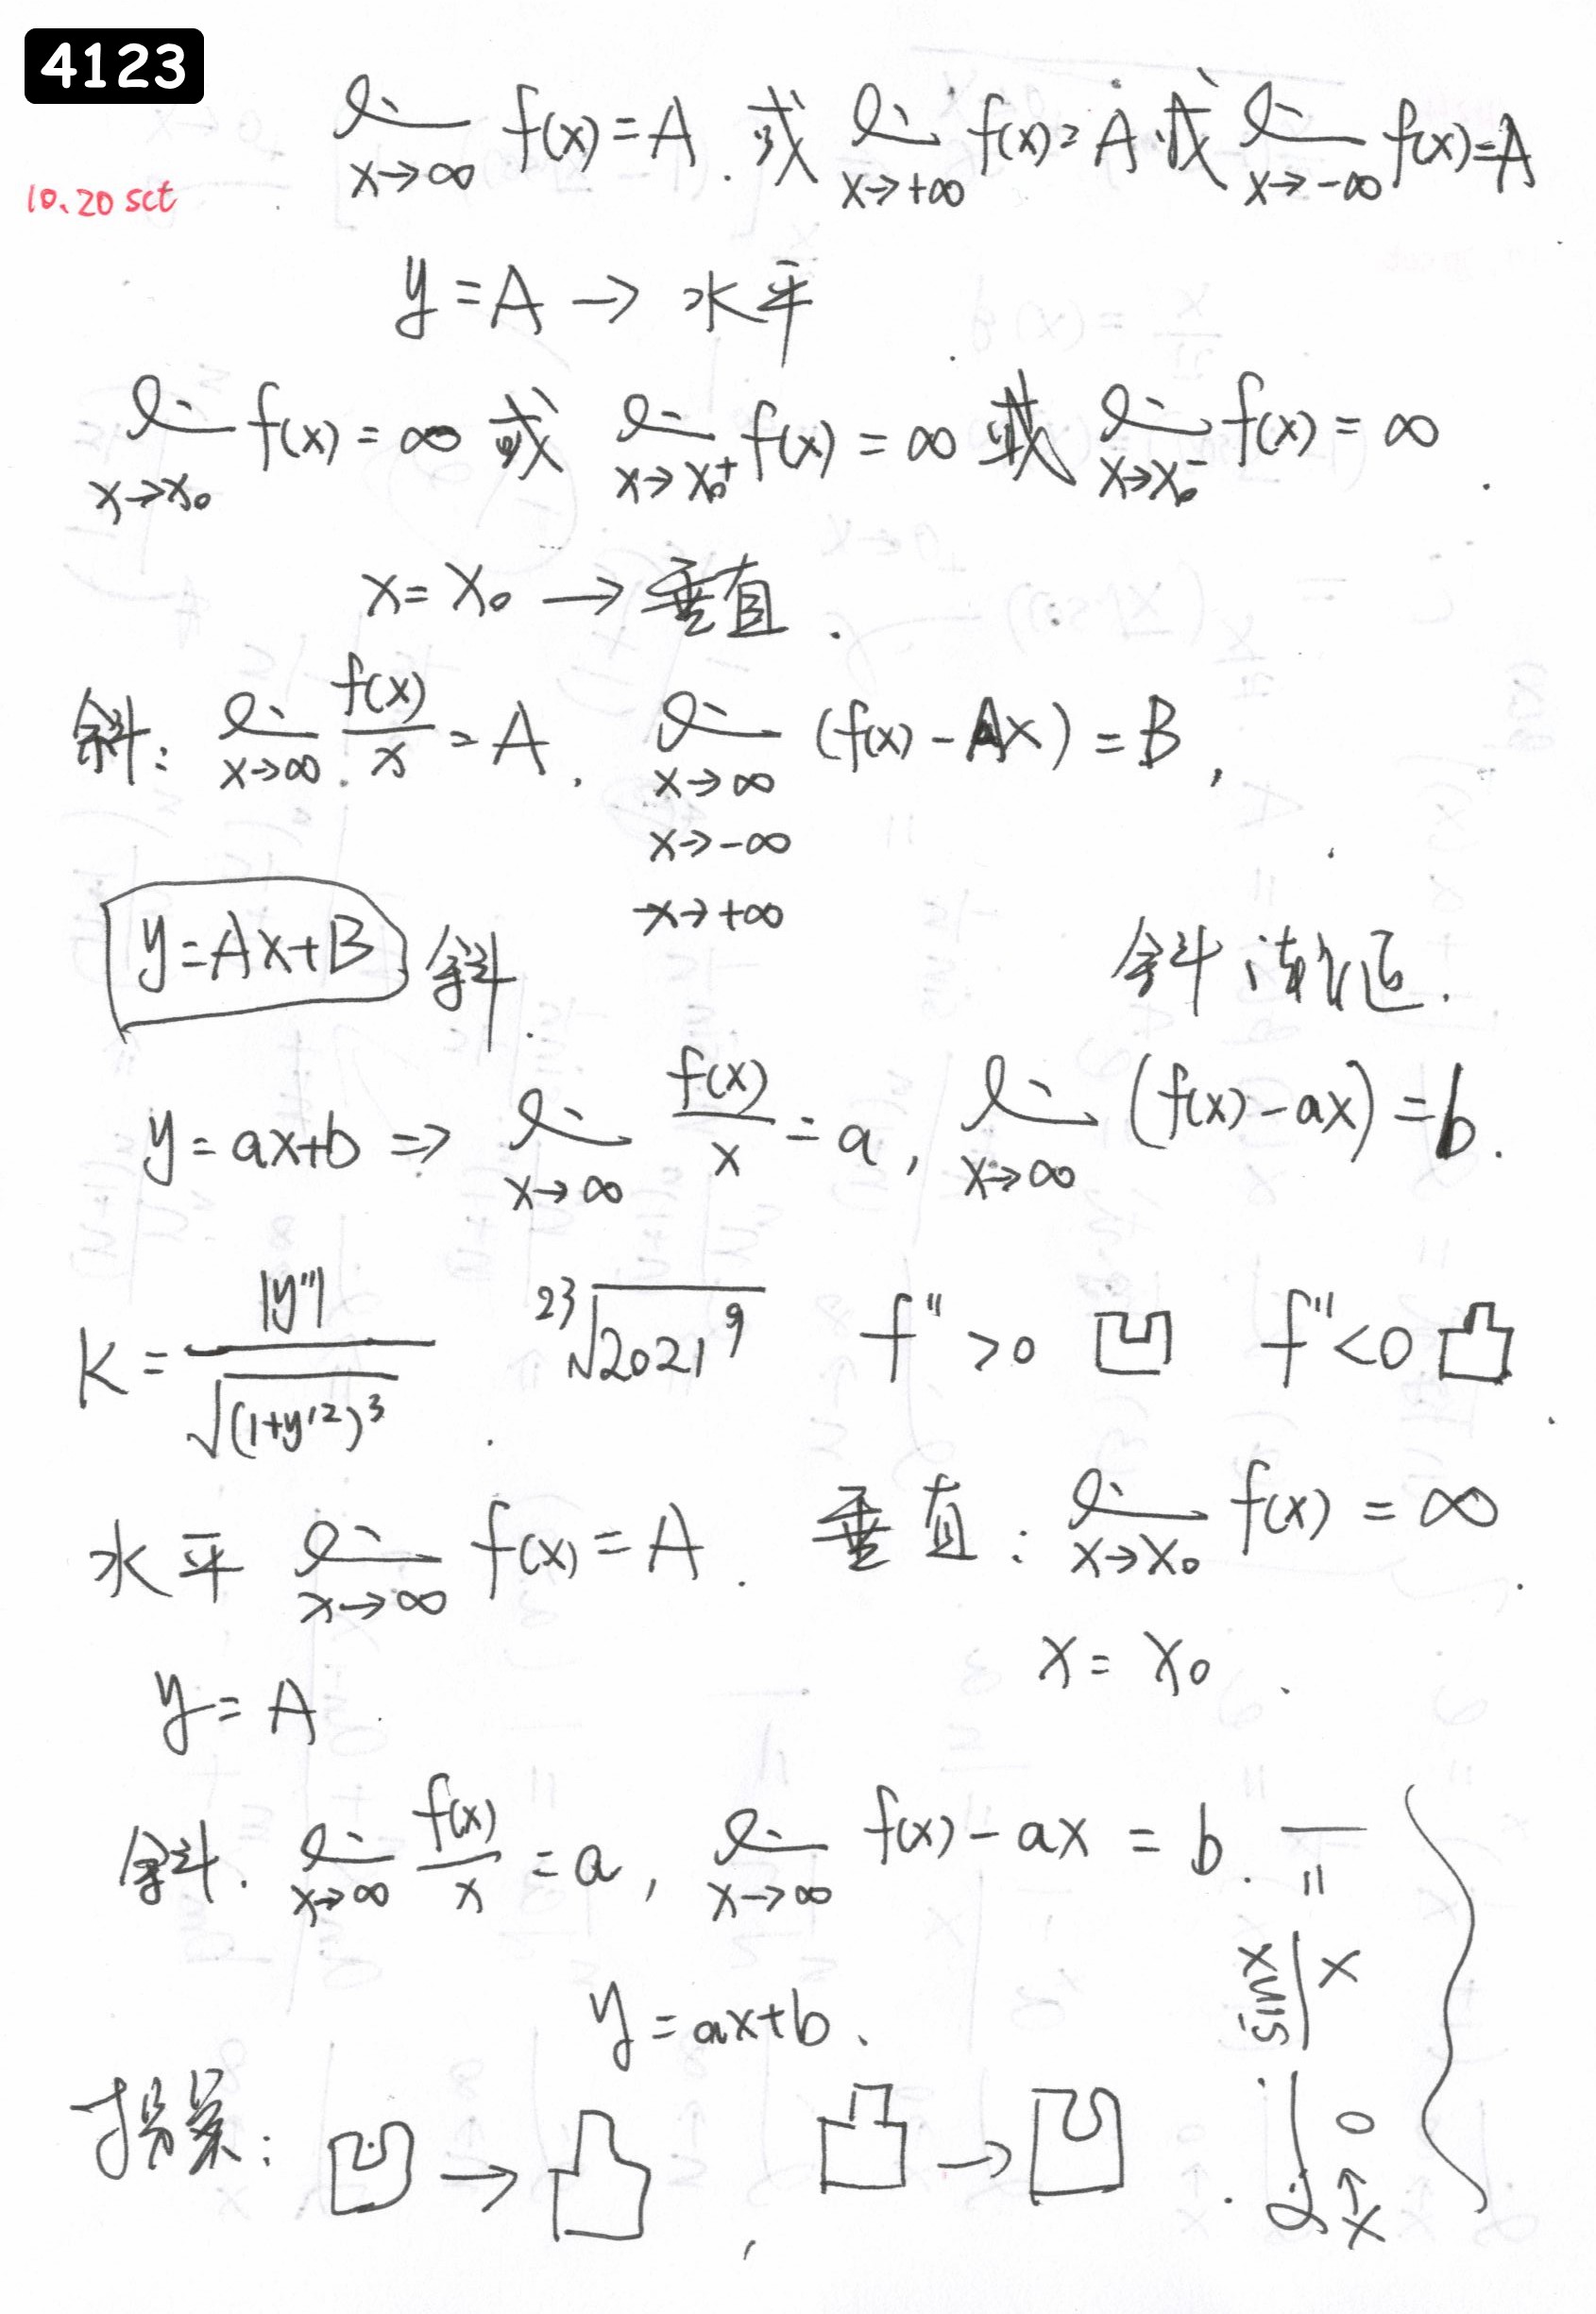 4123
lim x→∞ f(x)=A. 或 lim x→+∞ f(x)=A 或 lim x→-∞ f(x)=A
10.20 sct
y=A → 水平
lim x→x₀ f(x)=∞ 或 lim x→x₀⁺ f(x)=∞ 或 lim x→x₀⁻ f(x)=∞.
x=x₀ → 垂直.
斜: lim x→∞ f(x)/x = A. lim x→∞ (f(x)-Ax)=B,
x→-∞
x→+∞
y=Ax+B 斜.
斜渐近.
y=ax+b ⇒ lim x→∞ f(x)/x = a, lim x→∞ (f(x)-ax)=b.
K=|y''|/√(1+y'²)³. ²³√2021⁹ f''>0 凹 f''<0 凸
水平 lim x→∞ f(x)=A. 垂直: lim x→x₀ f(x)=∞.
x=x₀.
y=A
斜. lim x→∞ f(x)/x = a, lim x→∞ f(x)-ax=b.
y=ax+b.
lim x→0 sinx/x = 1
拐点: 凹→凸, 凸→凹.